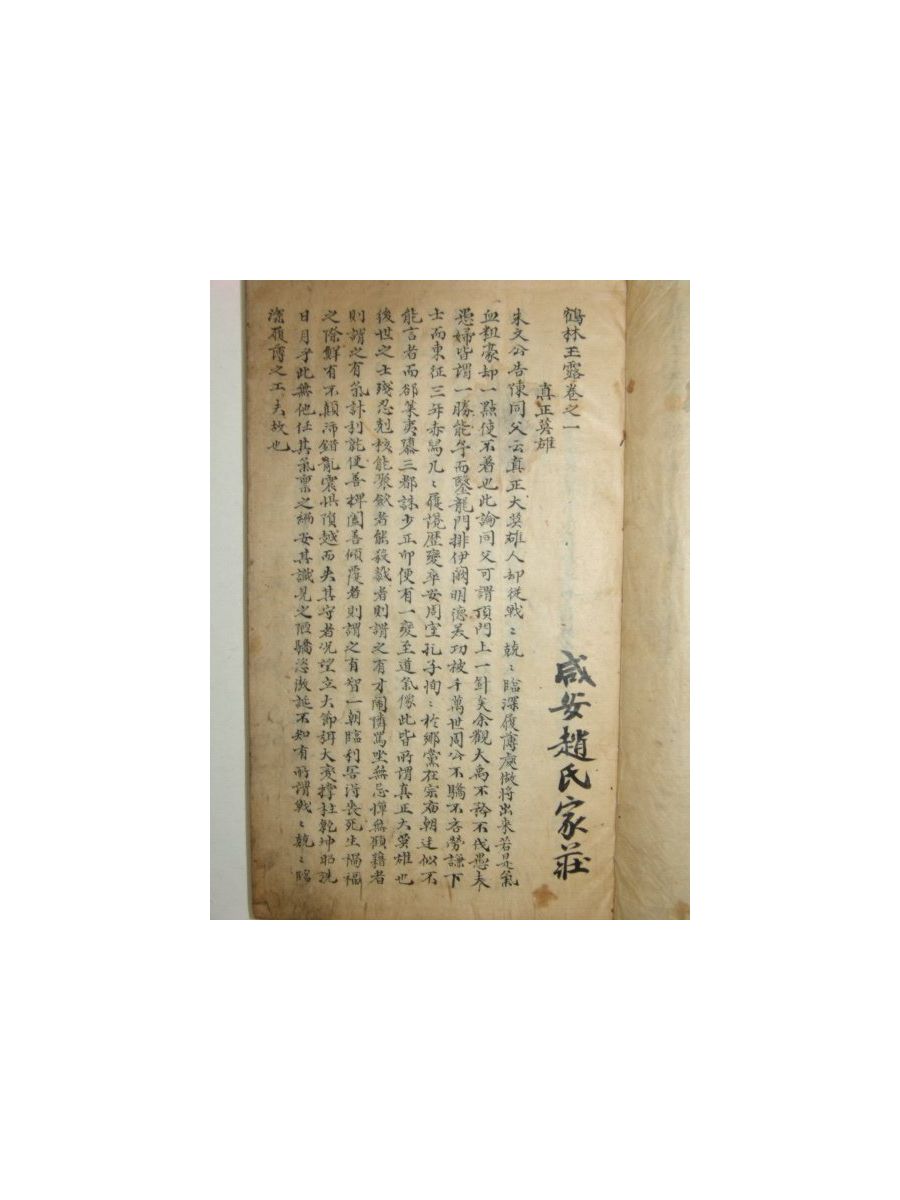 鶴林玉露卷之一
真正英雄
咸安趙氏家莊
朱文公告陳同父云真正大英雄人却從戰〻兢〻臨深履薄處做將出来若是氣
血粗豪却一點使不着也此論同父可謂頂門上一針矣余觀大禹不矜不伐愚夫
愚婦皆謂一勝能予而鑿龍門排伊闕明德美功被千萬世周公不驕不吝勞謙下
士而東征三年赤舄几〻履讒歷變卒安周室孔子恂〻於鄉黨在宗庙朝廷似不
能言者而却萊夷墮三都誅少正卯便有一變至道氣像此皆所謂真正大英雄也
後世之士殘忍尅核能聚歛者能殺戮者則謂之有才鬧隣罵坐無忌憚無顧藉者
則謂之有氣計利就便善捭闔善傾覆者則謂之有智一朝臨利害得喪死生禍福
之際鮮有不顛沛錯亂震惧隕越而失其守者况望立大節弭大变撑拄乾坤昭洗
日月乎此無他任其氣禀之偏安其識見之陋驕恣傲誕不知有所謂戰〻兢〻臨
深履薄之工夫故也